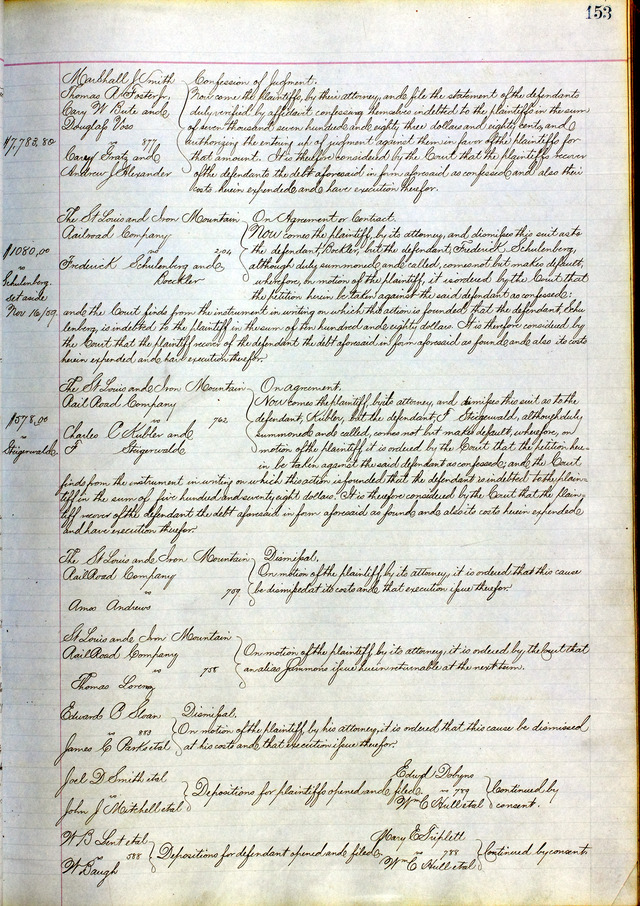 153
Marshall J. Smith
Thomas A Foster Jr,
Cary W Bute and
Douglass Voss
vs 877
Carey Gratz and
Andrew J Alexander
$7,783,80
Confession of Judgment.
Now come the plaintiffs, by their attorney, and file the statement of the defendants
duly verified by affidavit confessing themselves indebted to the plaintiffs in the sum
of seven thousand seven hundred and eighty three dollars and eighty cents, and
authorizing the entering up of judgment against them in favor of the plaintiffs for
that amount. It is therefore considered by the Court that the plaintiffs recover
of the defendants the debt aforesaid in form aforesaid as confessed and also their
costs herein expended and have execution therefor.
The St Louis and Iron Mountain
Railroad Company
vs 204
Frederick Schulenberg and
Bockler
$1080,00
vs
Schulenberg.
set aside
Nov 16/59.
On Agreement or Contract.
Now comes the plaintiff, by its attorney, and dismisses this suit as to
the defendant, Bockler, but the defendant, Frederick Schulenberg,
although duly summoned and called, comes not but makes default,
wherefore, on motion of the plaintiff, it is ordered by the Court that
the petition herein be taken against the said defendant as confessed:
and the Court finds from the instrument in writing on which this action is founded that the defendant, Schu
lenberg, is indebted to the plaintiff in the sum of ten hundred and eighty dollars. It is therefore considered by
the Court that the plaintiff recover of the defendant the debt aforesaid in form aforesaid as found and also its costs
herein expended and have execution therefor.
The St Louis and Iron Mountain
Rail Road Company
vs 762
Charles C Kubler and
F Steigerwald
$578,00
vs
Steigerwald
On agreement.
Now comes the plaintiff, by its attorney, and dismisses this suit as to the
defendant, Kubler, but the defendant, F Steigerwald, although duly
summoned and called, comes not but makes default, wherefore, on
motion of the plaintiff it is ordered by the Court that the petition here-
in be taken against the said defendant as confessed, and the Court
finds from the instrument in writing on which this action is founded that the defendant is indebted to the plain-
tiff in the sum of five hundred and seventy eight dollars. It is therefore considered by the Court that the plain-
tiff recover of the defendant the debt aforesaid in form aforesaid as found and also its costs herein expended
and have execution therefor.
The St Louis and Iron Mountain
Rail Road Company
vs 759
Amos Andrews
Dismissal.
On motion of the plaintiff by its attorney, it is ordered that this cause
be dismissed at its costs and that execution issue therefor.
St Louis and Iron Mountain
Rail Road Company
vs 758
Thomas Lorenz
On motion of the plaintiff by its attorney, it is ordered by the Court that
an alias summons issue herein returnable at the next term.
Edward C Sloan
vs 883
James C Parks et al
Dismissal.
On motion of the plaintiff by his attorney, it is ordered that this cause be dismissed
at his costs and that execution issue therefor.
Joel D Smith et al
vs
John J Mitchell et al
Depositions for plaintiffs opened and filed.
Edwd Dobyns
vs 789
Wm C Hull et al
Continued by
consent.
W B Lent et al
vs 588
W Baugh
Depositions for defendant opened and filed.
Mary E Triplett
vs 788
Wm C Hull et al
Continued by consent